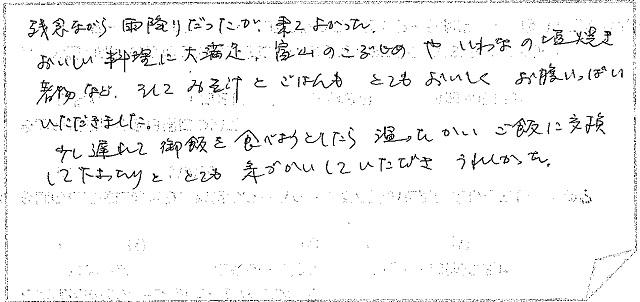 残念ながら雨降りだったが、来てよかった。
おいしい料理に大満足、富山のこぶじめやいわなの塩焼き
煮物など、そしてみそ汁とごはんもとてもおいしくお腹いっぱい
いただきました。
少し遅れて御飯を食べようとしたら温ったかいご飯に交換
して下さったりと とても気づかいしていただき うれしかった。